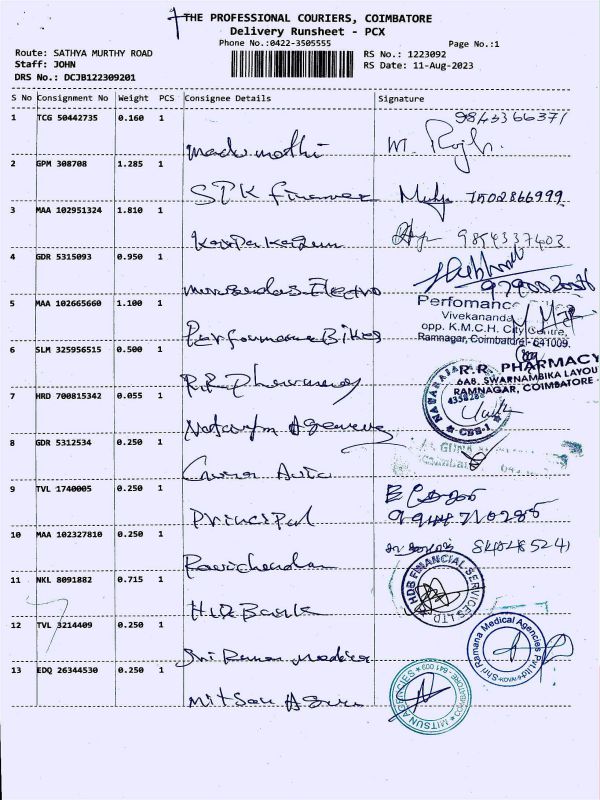 THE PROFESSIONAL COURIERS, COIMBATORE
Delivery Runsheet - PCX
Phone No.:0422-3505555
Page No.:1
Route: SATHYA MURTHY ROAD
RS No.: 1223092
Staff: JOHN
RS Date: 11-Aug-2023
DRS No.: DCJB122309201
S No Consignment No Weight PCS Consignee Details Signature
1 TCG 50442735 0.160 1
9843366371
2 GPM 308708 1.285 1
STK Finance 7502866999
3 MAA 102951324 1.810 1
9854337403
4 GDR 5315093 0.950 1
5 MAA 102665660 1.100 1
Performance Bikes
Perfomance
Vivekananda
opp. K.M.C.H. City Centre,
Ramnagar, Coimbatore - 641009.
6 SLM 325956515 0.500 1
R.R. Pharmacy
R.R. PHARMACY
6A8, SWARNAMBIKA LAYOU
RAMNAGAR, COIMBATORE -
7 HRD 700815342 0.055 1
CBE-1
8 GDR 5312534 0.250 1
Guna Auto
9 TVL 1740005 0.250 1
Principal
9944710285
10 MAA 102327810 0.250 1
Ravichandran
11 NKL 8091882 0.715 1
HDB Bank
HDB FINANCIAL SERVICES LTD
12 TVL 3214409 0.250 1
Sri Ramana Medical
Shri Ramana Medical Agencies Pvt Ltd
13 EDQ 26344530 0.250 1
Mitsun Agencies
MITSUN AGENCIES
COIMBATORE - 641 009